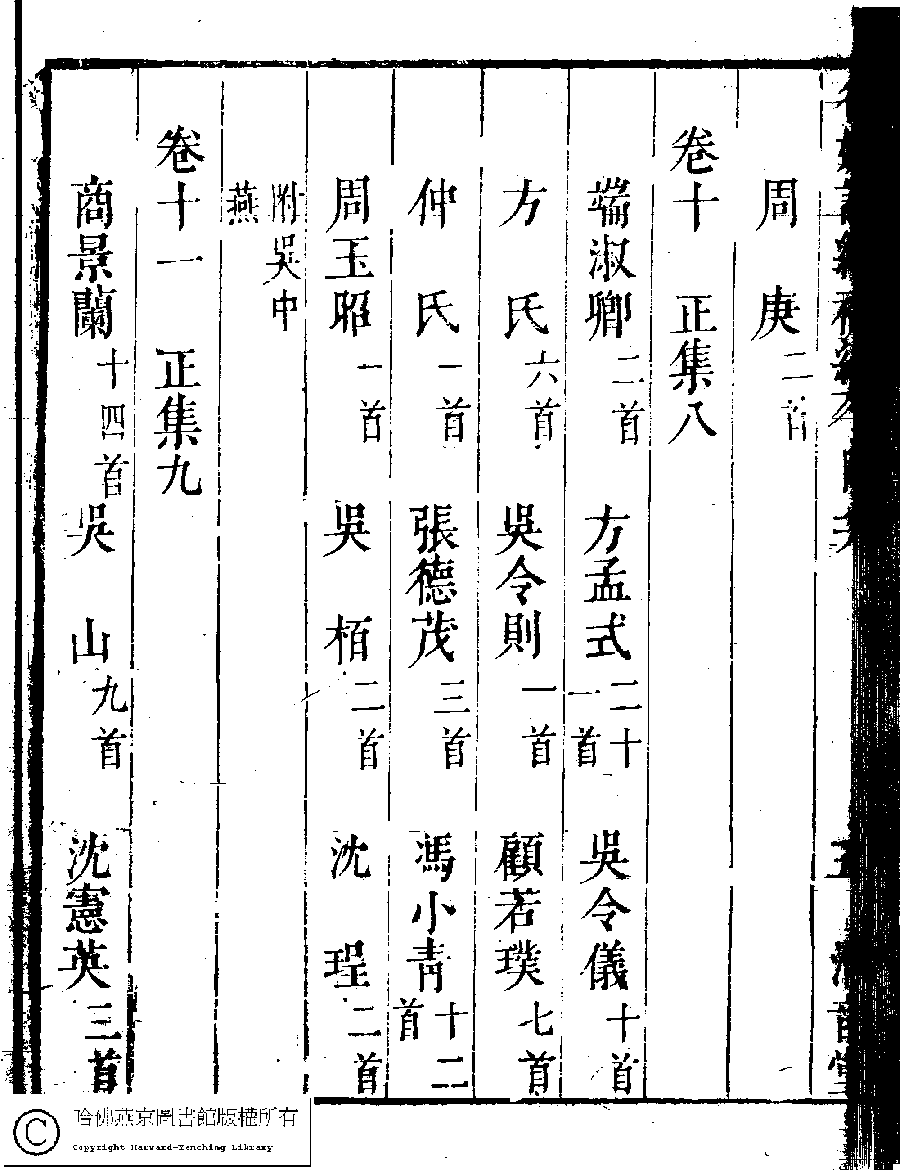 周庚二首
卷十 正集八
端淑卿二首 方孟式二十一首 吳令儀十首
方氏六首 吳令則一首 顧若璞七首
仲氏一首 張德茂三首 馮小青十二首
周玉昭一首 吳栢二首 沈珵二首
附吳中燕
卷十一 正集九
商景蘭十四首 吳山九首 沈憲英三首
哈佛燕京圖書館版權所有
Copyright Harvard-Yenching Library